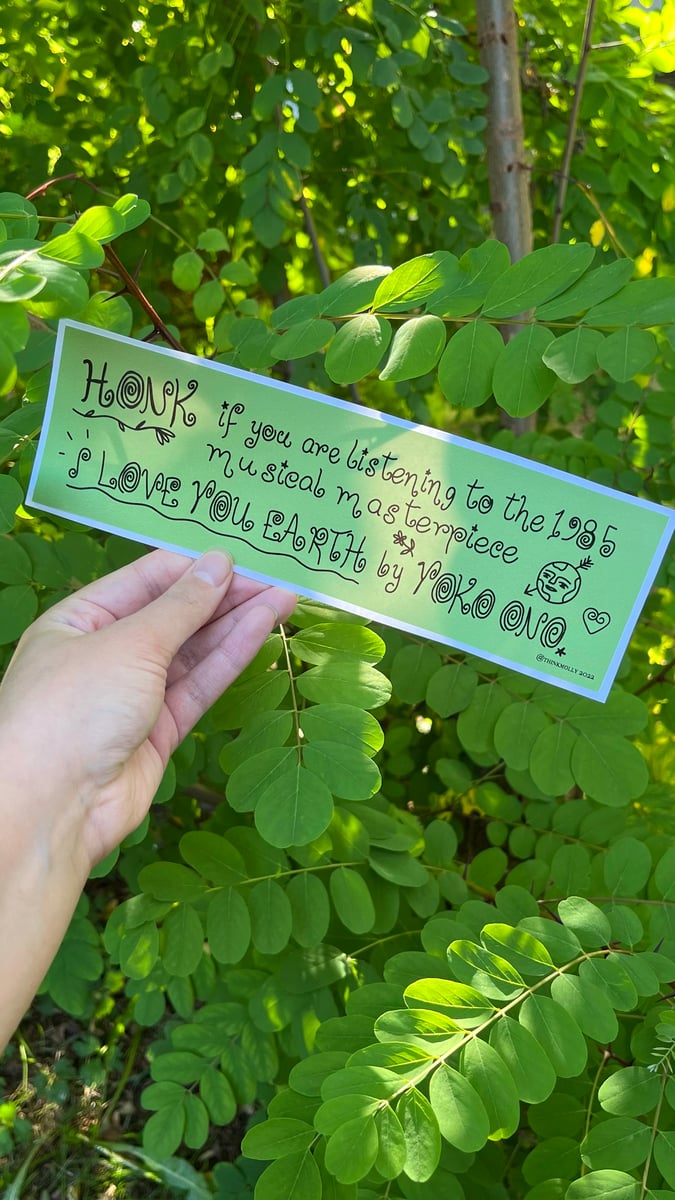 HONK if you are listening to the 1985
musical masterpiece
I LOVE YOU EARTH by YOKO ONO
@THINKMOLLY 2022